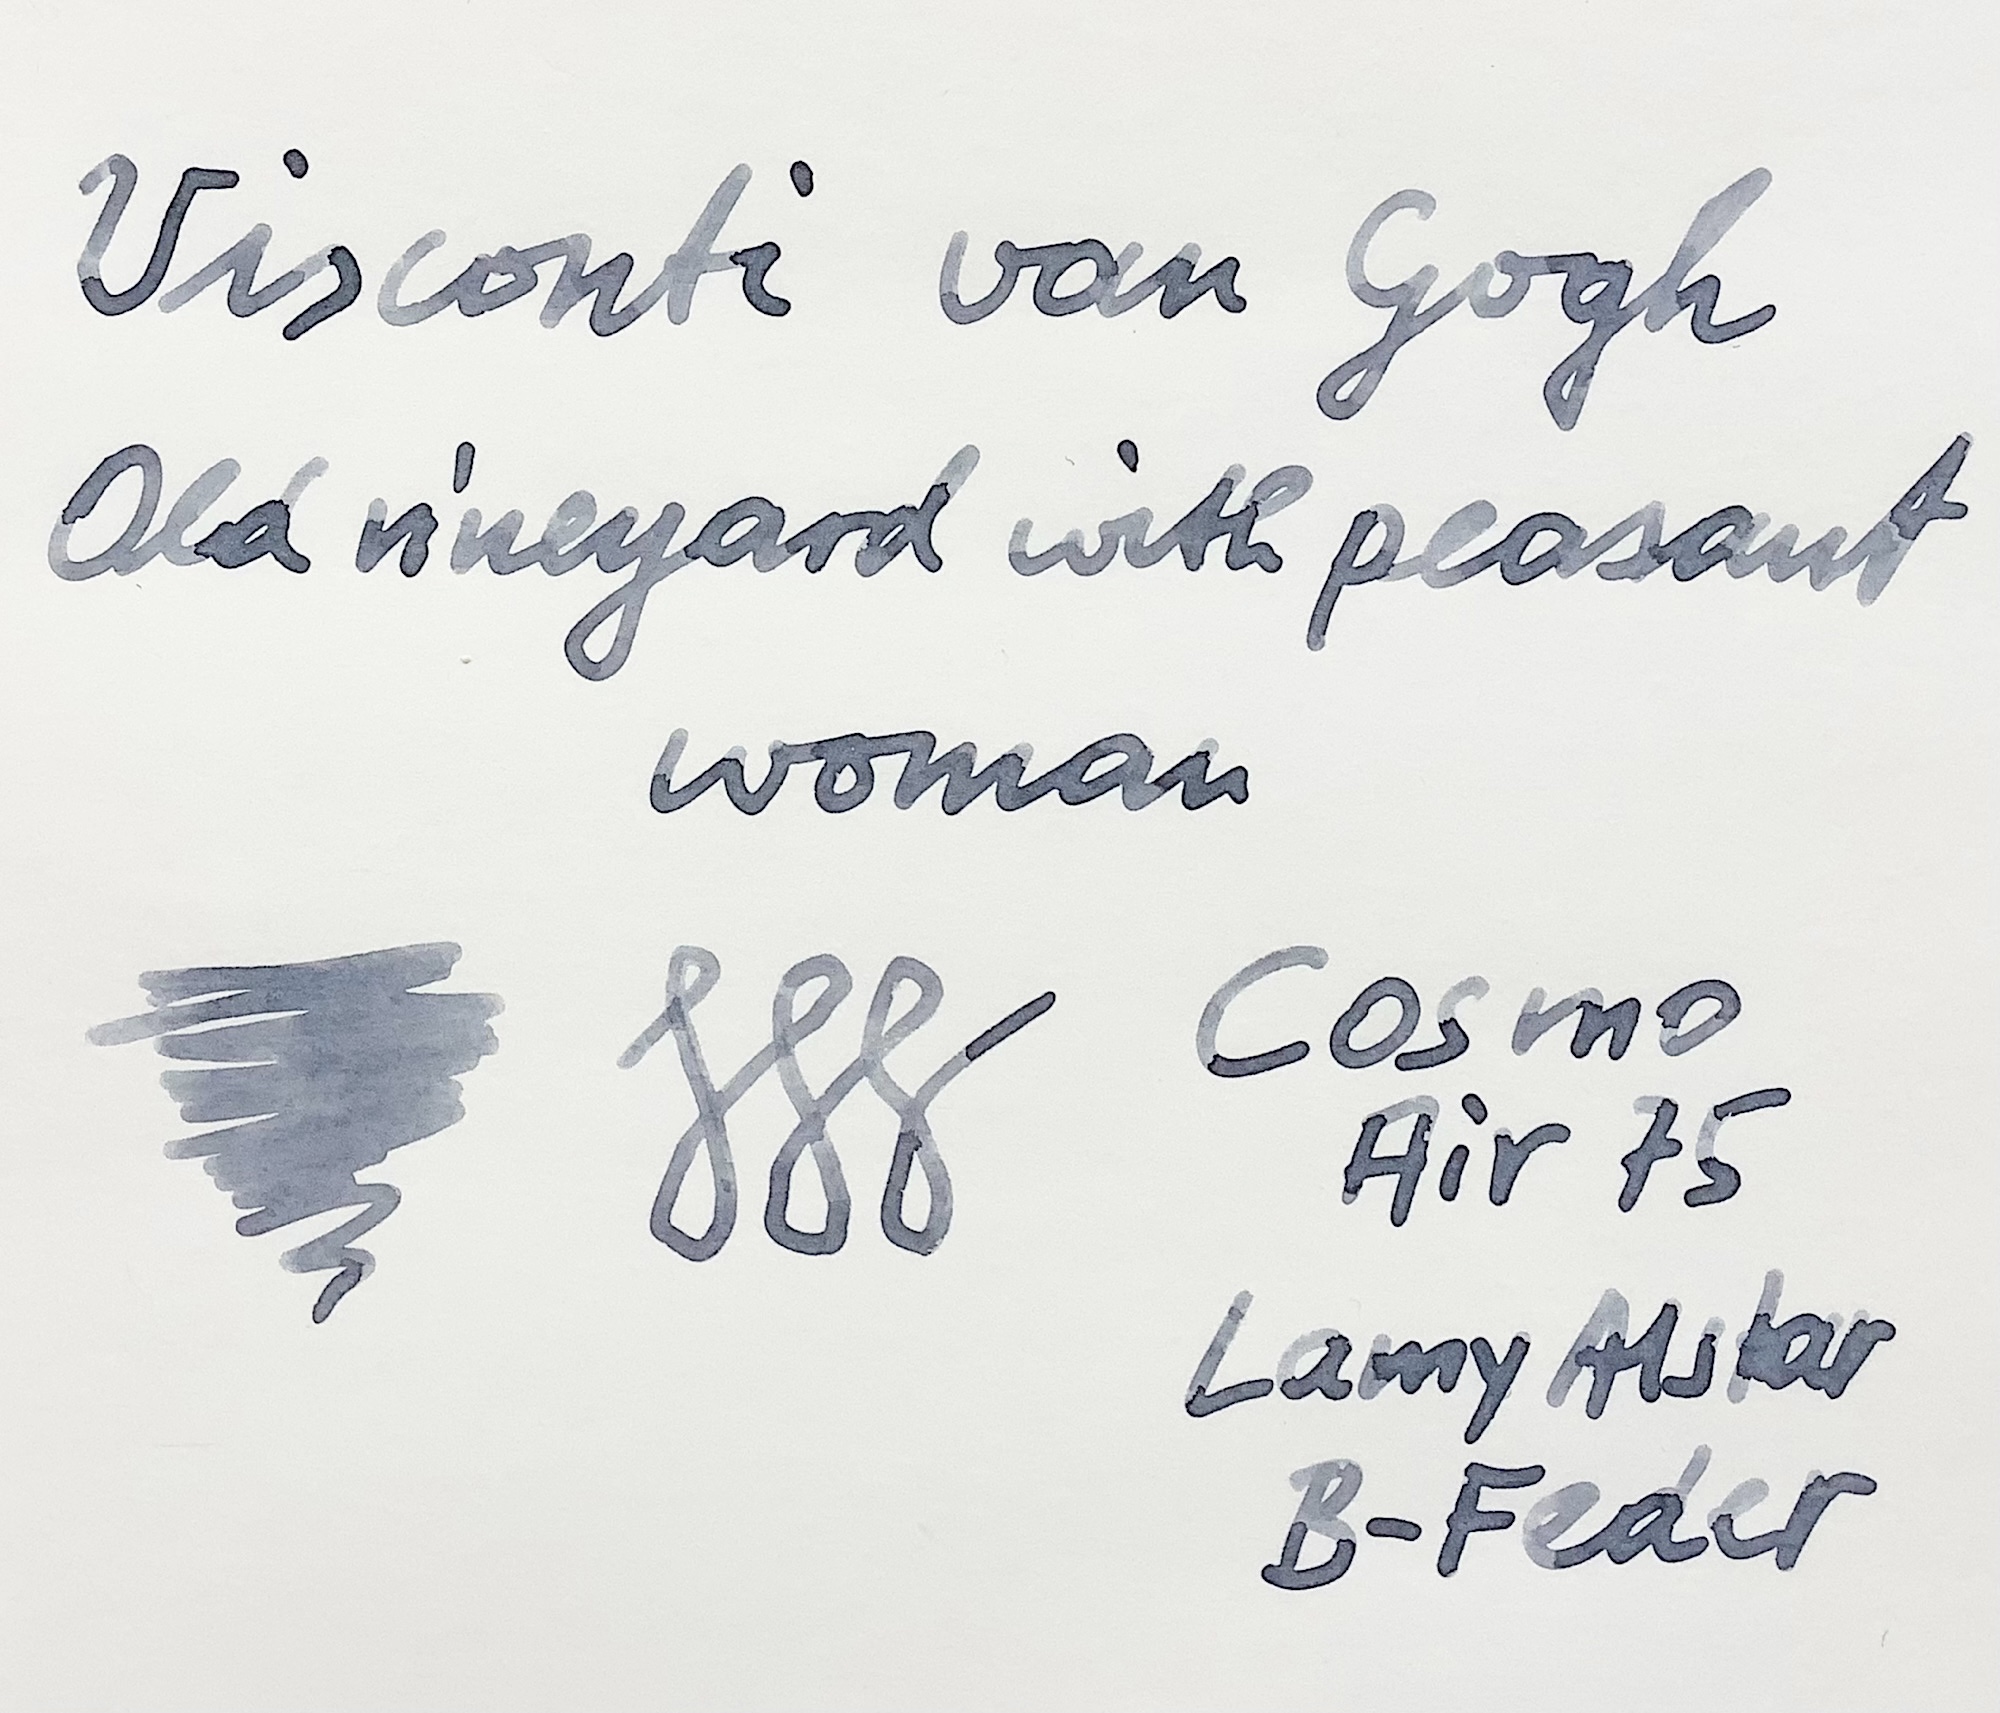 Visconti van Gogh
Old vineyard with peasant
woman
Cosmo
Air 75
Lamy Alstar
B-Feder